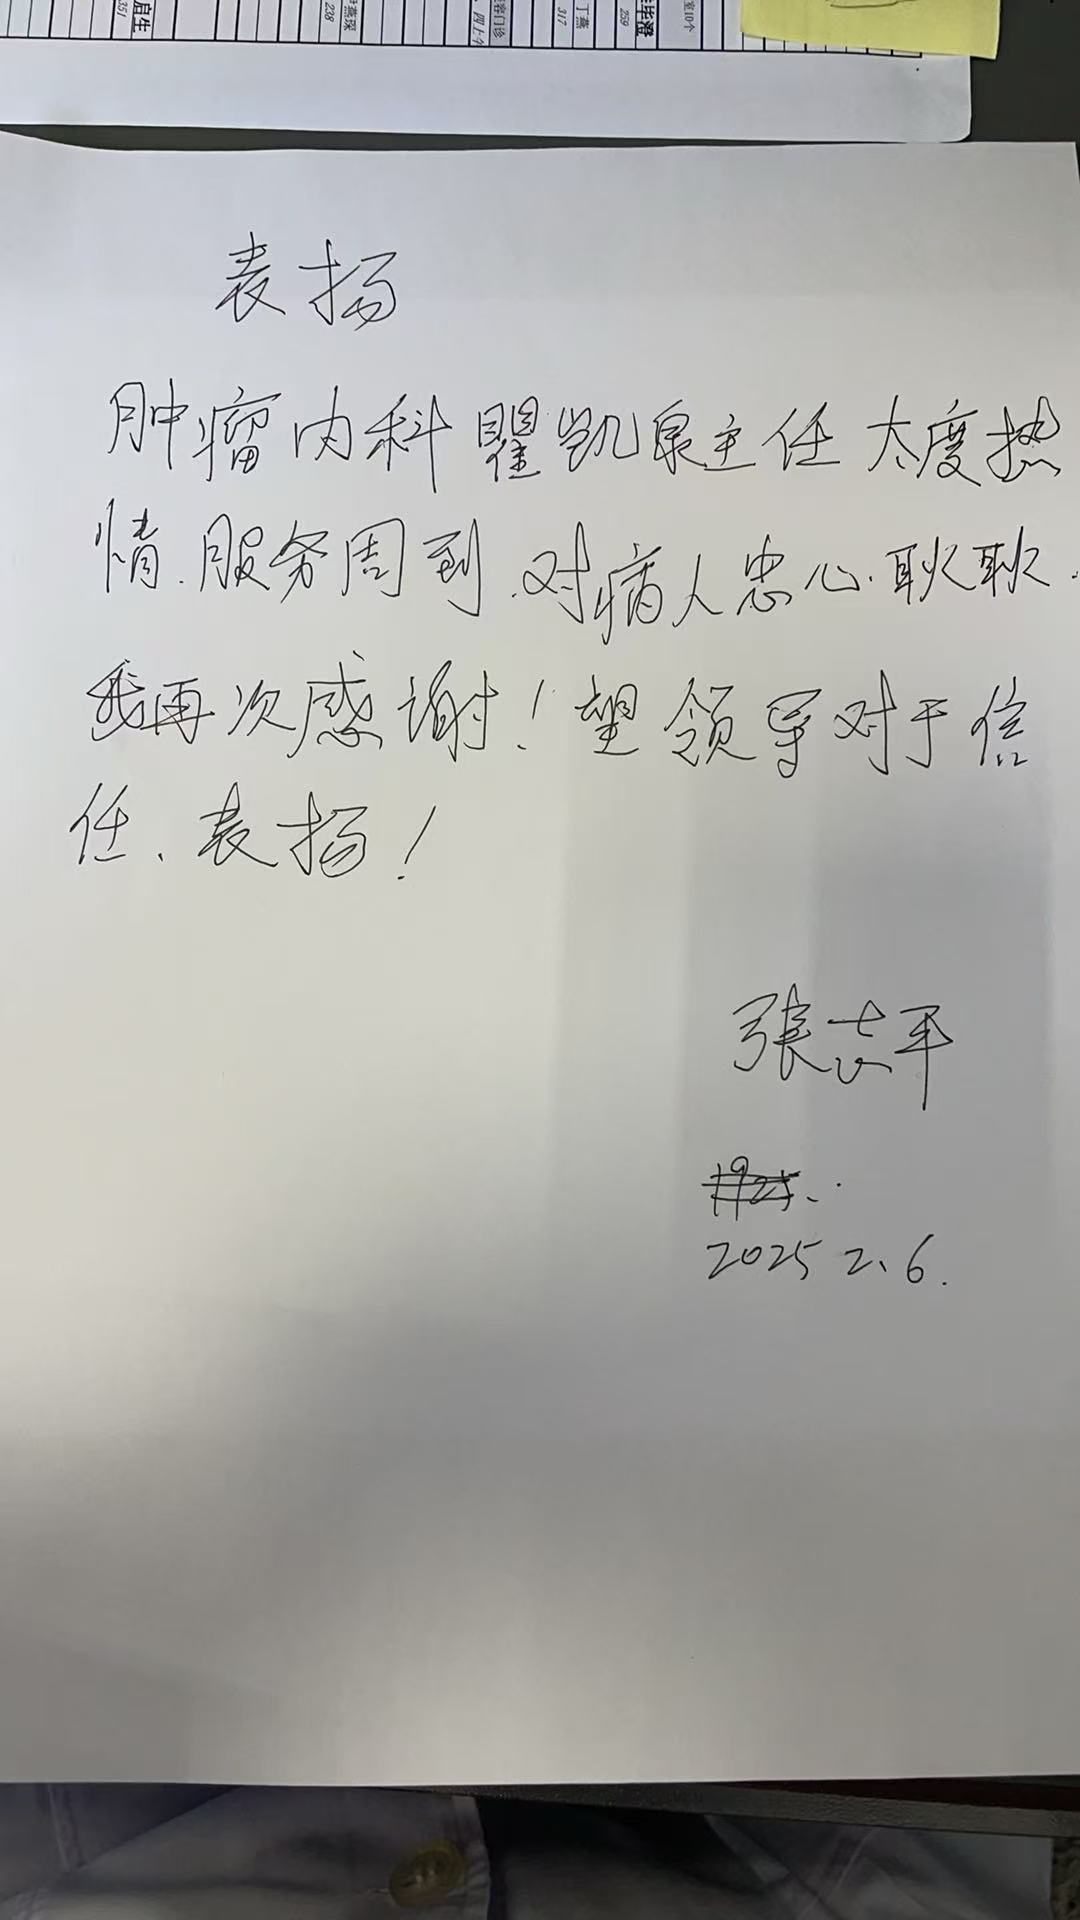 启生
351
燕琛
238
四上午
客门诊
丁燕
317
毕澄
259
室10个
表扬
肿瘤内科瞿凯泉主任太度热
情.服务周到.对病人忠心.耿耿.
我再次感谢!望领导对于信
任、表扬!
張志平
2025 2、6.